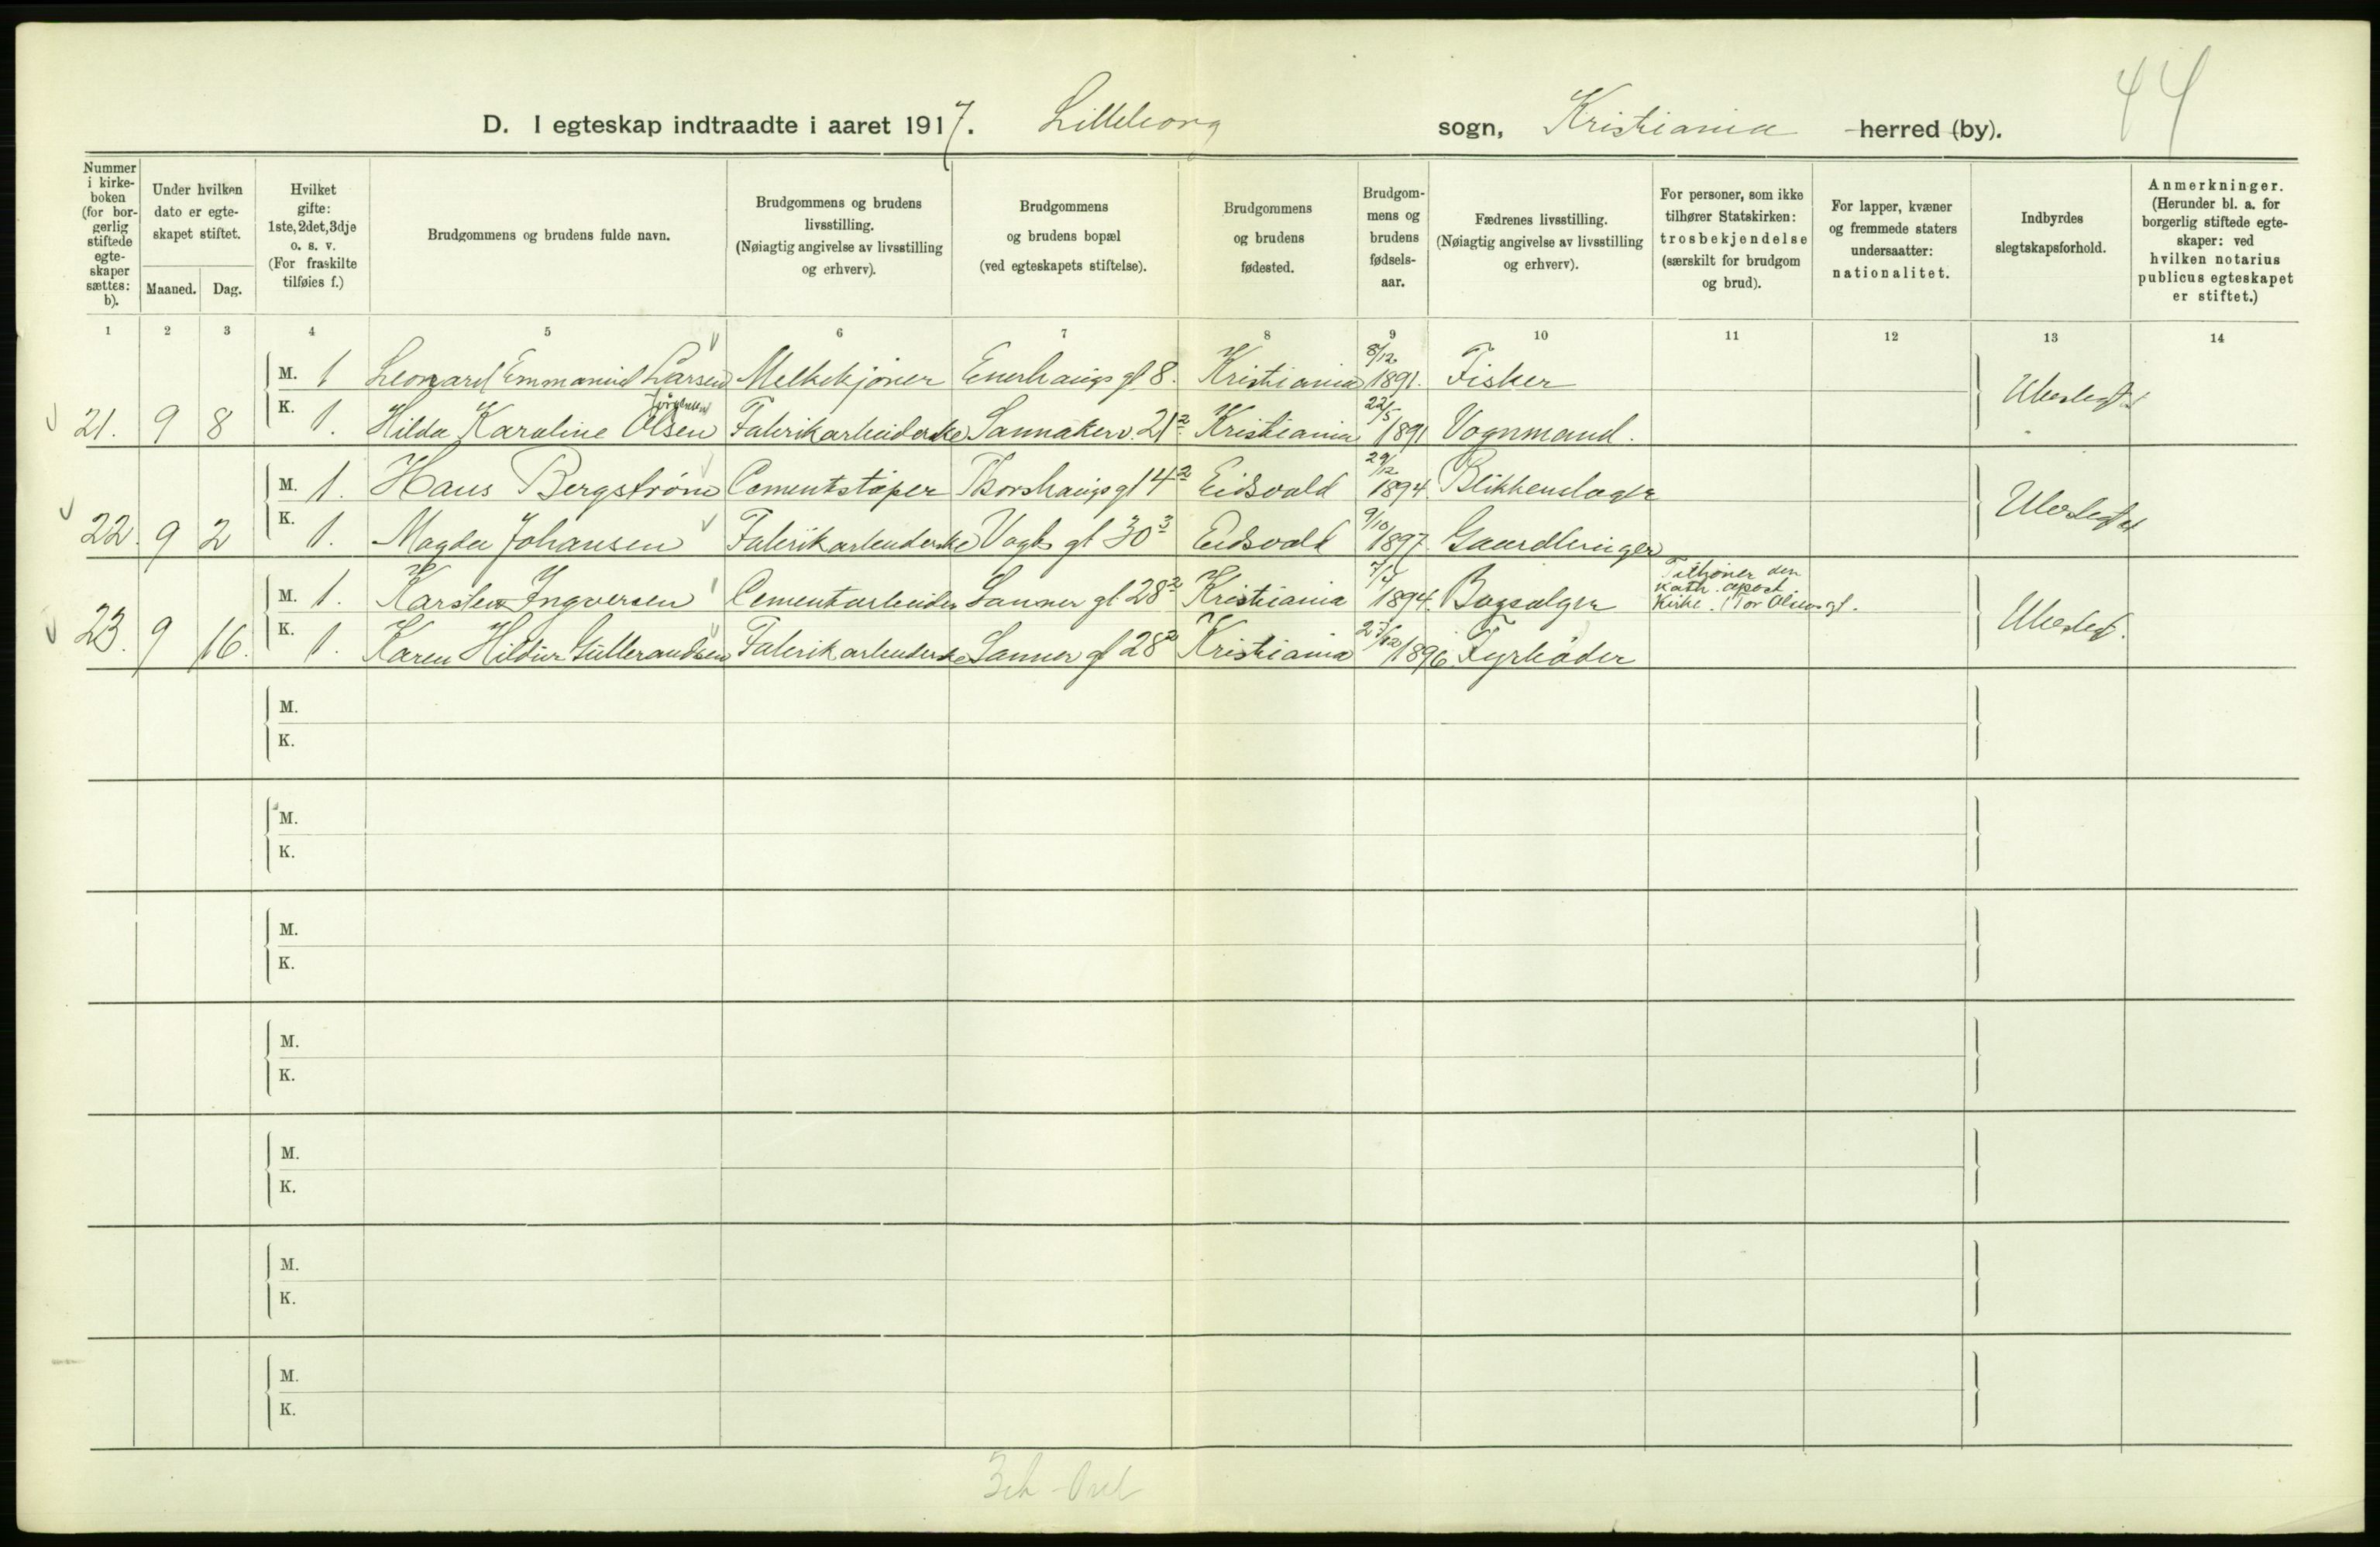 44
D. I egteskap indtraadte i aaret 1917. Lilleborg sogn, Kristiania herred (by).
Nummer i kirkeboken (for borgerlig stiftede egteskaper sættes: b).
Under hvilken dato er egteskapet stiftet.
Maaned. Dag.
Hvilket gifte: 1ste, 2det, 3dje o. s. v. (For fraskilte tilføies f.)
Brudgommens og brudens fulde navn.
Brudgommens og brudens livsstilling. (Nøiagtig angivelse av livsstilling og erhverv).
Brudgommens og brudens bopæl (ved egteskapets stiftelse).
Brudgommens og brudens fødested.
Brudgommens og brudens fødselsaar.
Fædrenes livsstilling. (Nøiagtig angivelse av livsstilling og erhverv).
For personer, som ikke tilhører Statskirken: trosbekjendelse (særskilt for brudgom og brud).
For lapper, kvæner og fremmede staters undersaatter: nationalitet.
Indbyrdes slegtskapsforhold.
Anmerkninger. (Herunder bl. a. for borgerlig stiftede egteskaper: ved hvilken notarius publicus egteskapet er stiftet.)
1 2 3 4 5 6 7 8 9 10 11 12 13 14
M. 1 Leonard Emmanuel Larsen Melkekjører Enerhaugs gt 8. Kristiania 8/12 1891. Fisker
Ubeslegtet
Jørgensen
21. 9 8 K. 1. Hilda Karoline Olsen Fabrikarbeiderske Sannakerv. 21² Kristiania 22/5 1891 Vognmand.
M. 1. Hans Bergstrøm Cementstøper Thorshaugs gt 4² Eidsvold 29/12 1894. Blikkenslager
Ubeslegtet
22. 9 2 K. 1. Magda Johansen Fabrikarbeiderske Vogts gt 30³ Eidsvold 9/10 1897. Gaardbruger
M. 1. Karsten Ingversen Cementarbeider Sanner gt 28² Kristiania 7/4 1894. Bogsælger Tilhører den kath. apost. Kirke. Tor Olsens gt.
Ubeslegt.
23. 9 16. K. 1. Karen Hildur Gulbrandsen Fabrikarbeiderske Sanner gt 28² Kristiania 27/12 1896. Fyrbøder
M.
K.
M.
K.
M.
K.
M.
K.
M.
K.
M.
K.
M.
K.